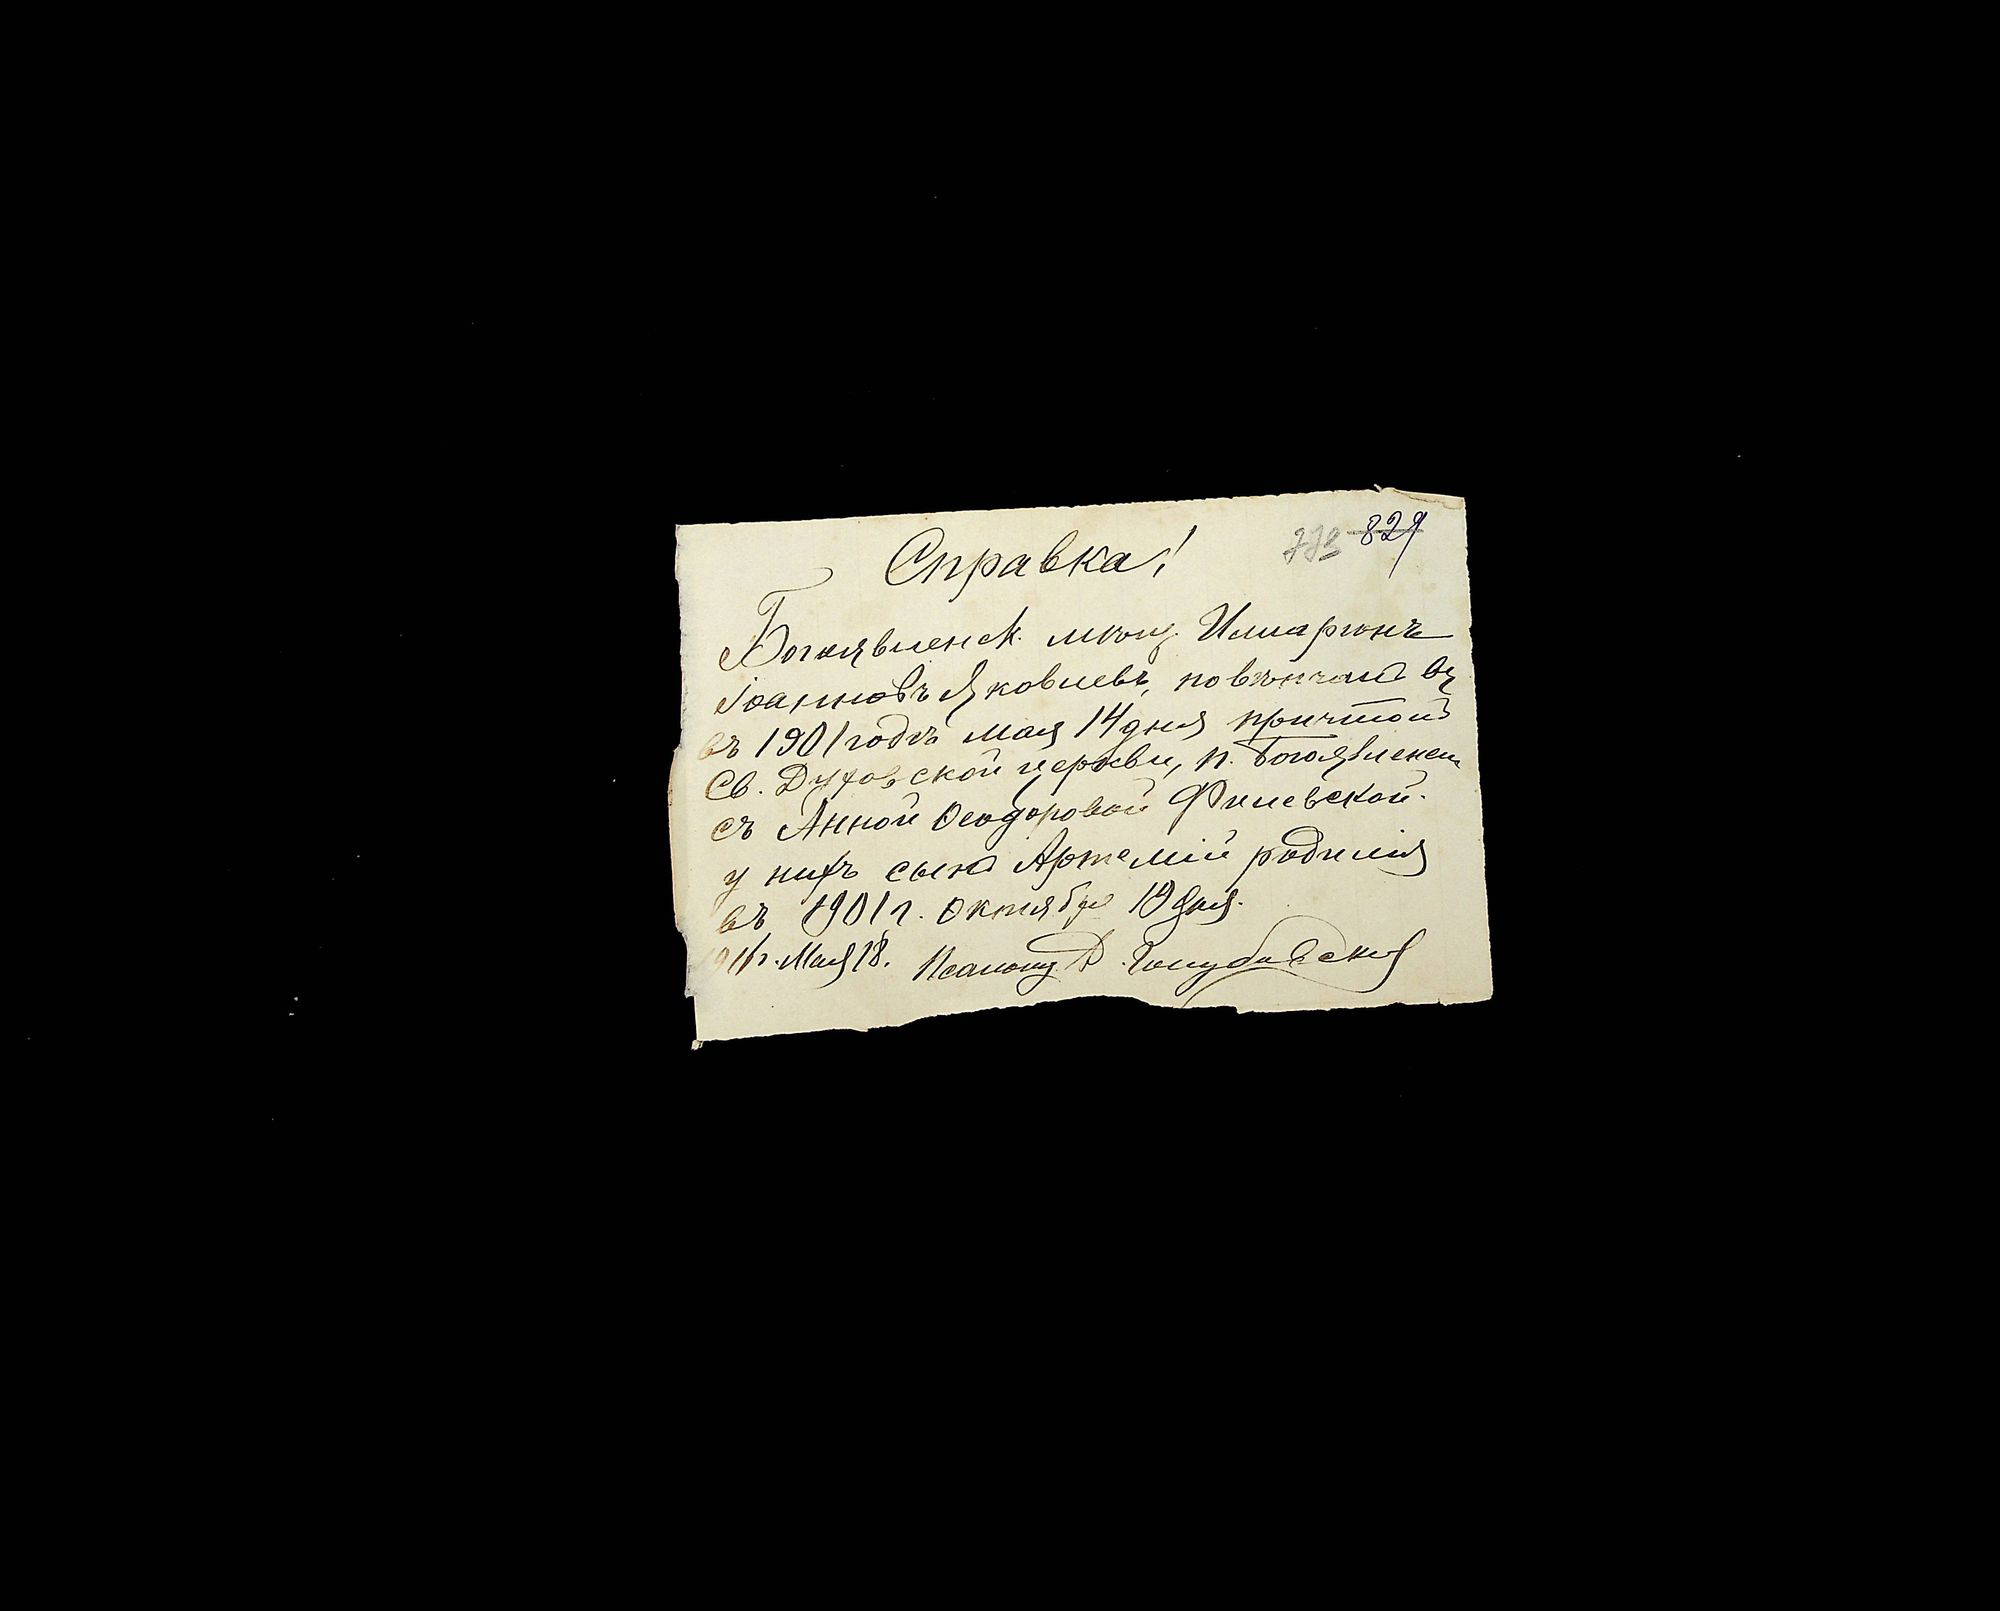 773 829
Справка!
Богоявленск. мѣщ. Иларионъ
Іоанновъ Яковлевъ, повѣнчанъ въ
въ 1901 годъ мая 14 дня причтомъ
Св. Духовской церкви, п. Богоявленск
съ Анной Ѳеодоровой Филевской.
у нихъ сынъ Артемій родился
въ 1901 г. Октября 19 дня.
1911 г. Мая 18. Псаломщ. Д. Голубовскій